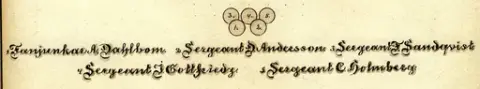 3. 4. 5.
1. 2.
1 Fanjunkar A Dahlbom 2 Sergeant D. Andersson 3 Sergeant F Sandqvist
4 Sergeant J Gottfridz 5 Sergeant C Holmberg